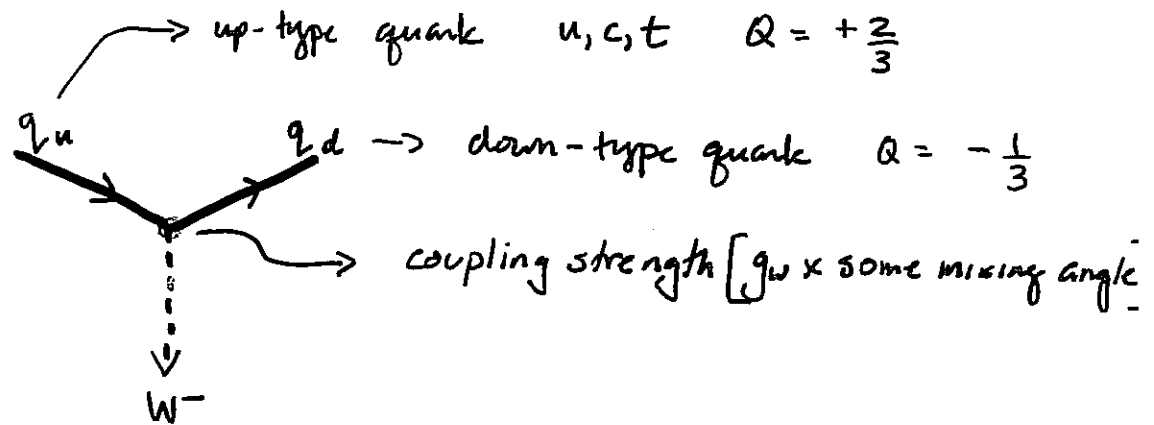 → up-type quark u, c, t Q = + 2/3
q_u q_d → down-type quark Q = - 1/3
→ coupling strength [g_w x some mixing angle]
W⁻